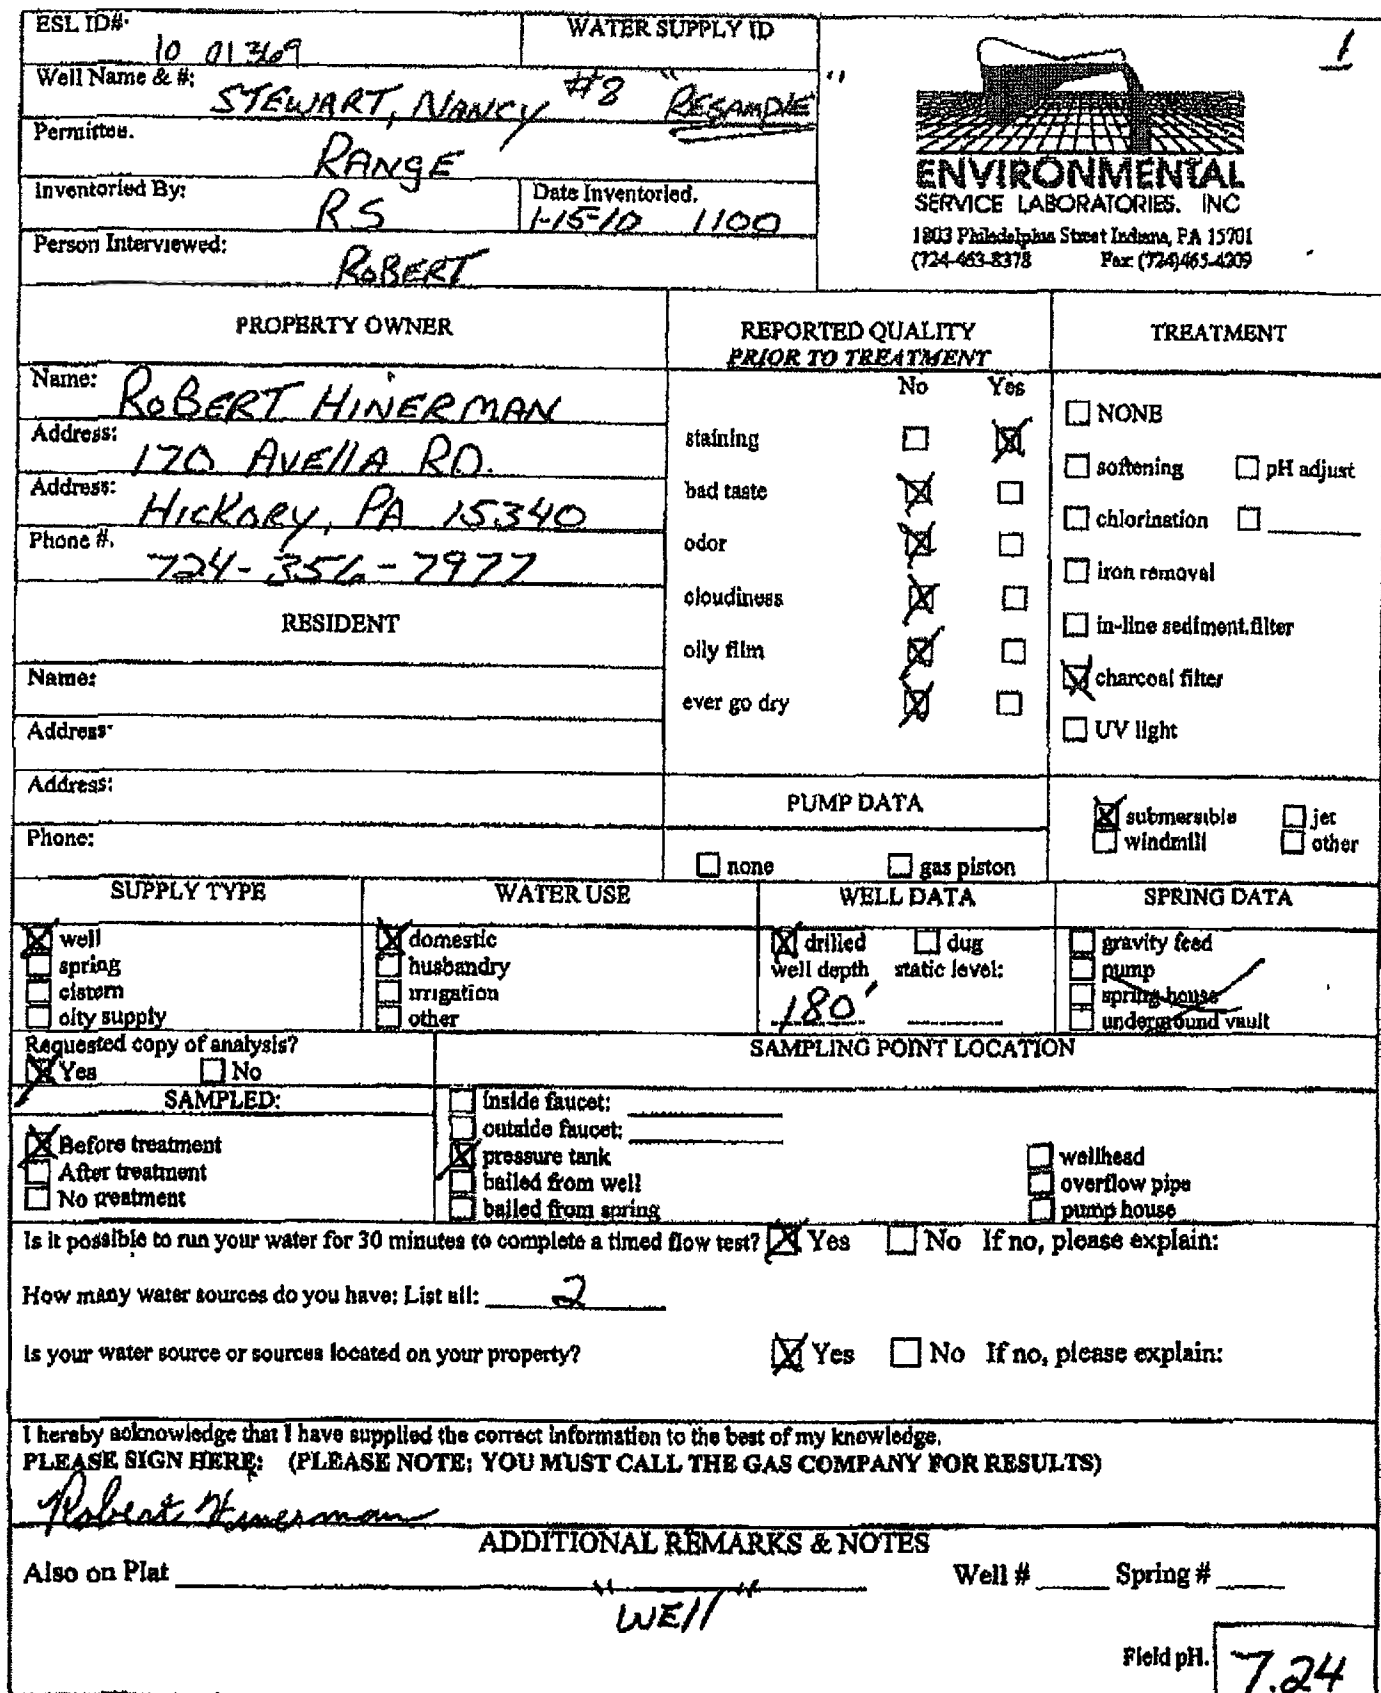 ESL ID#.
WATER SUPPLY ID
1
10 01369
Well Name & #:
STEWART, NANCY #8 "RESAMPLE"
Permittee.
RANGE
Inventoried By:
RS
Date Inventoried.
1-15-10 1100
Person Interviewed:
ROBERT
ENVIRONMENTAL
SERVICE LABORATORIES. INC
1803 Philadelphia Street Indiana, PA 15701
(724-463-8378 Fax: (724)465-4209
PROPERTY OWNER
Name: ROBERT HINERMAN
Address: 170 AVEllA RD.
Address: HICKORY, PA 15340
Phone #. 724-356-7977
RESIDENT
Name:
Address
Address:
Phone:
REPORTED QUALITY
PRIOR TO TREATMENT
No Yes
staining
bad taste
odor
cloudiness
oily film
ever go dry
TREATMENT
NONE
softening pH adjust
chlorination
iron removal
in-line sediment.filter
charcoal filter
UV light
PUMP DATA
none gas piston
submersible jet
windmill other
SUPPLY TYPE
well
spring
cistern
city supply
WATER USE
domestic
husbandry
irrigation
other
WELL DATA
drilled dug
well depth static level:
180'
SPRING DATA
gravity feed
pump
spring house
underground vault
Requested copy of analysis?
Yes No
SAMPLED:
Before treatment
After treatment
No treatment
SAMPLING POINT LOCATION
inside faucet:
outside faucet:
pressure tank
bailed from well
bailed from spring
wellhead
overflow pipe
pump house
Is it possible to run your water for 30 minutes to complete a timed flow test? Yes No If no, please explain:
How many water sources do you have: List all: 2
Is your water source or sources located on your property? Yes No If no, please explain:
I hereby acknowledge that I have supplied the correct information to the best of my knowledge.
PLEASE SIGN HERE: (PLEASE NOTE: YOU MUST CALL THE GAS COMPANY FOR RESULTS)
Robert Hinerman
ADDITIONAL REMARKS & NOTES
Also on Plat Well # Spring #
"WEll"
Field pH. 7.24